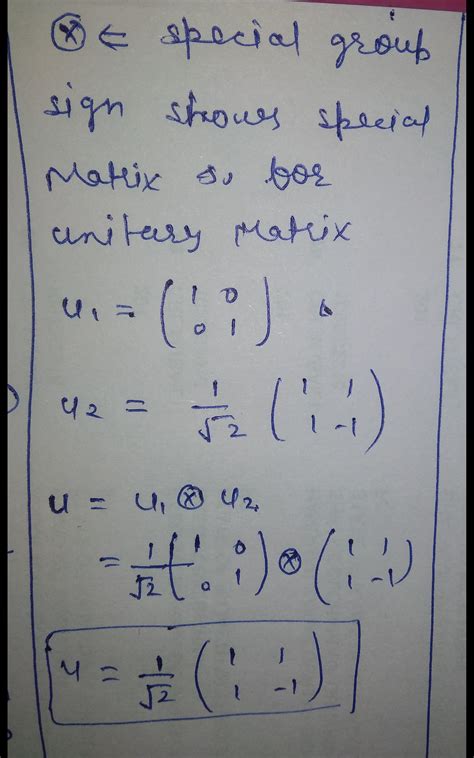 ⊗ ← special group
sign shows special
Matrix so for
unitary Matrix
u₁ = ( 1 0
0 1 ) &
u₂ = 1/√2 ( 1 1
1 -1 )
u = u₁ ⊗ u₂
= 1/√2 ( 1 0
0 1 ) ⊗ ( 1 1
1 -1 )
u = 1/√2 ( 1 1
1 -1 )